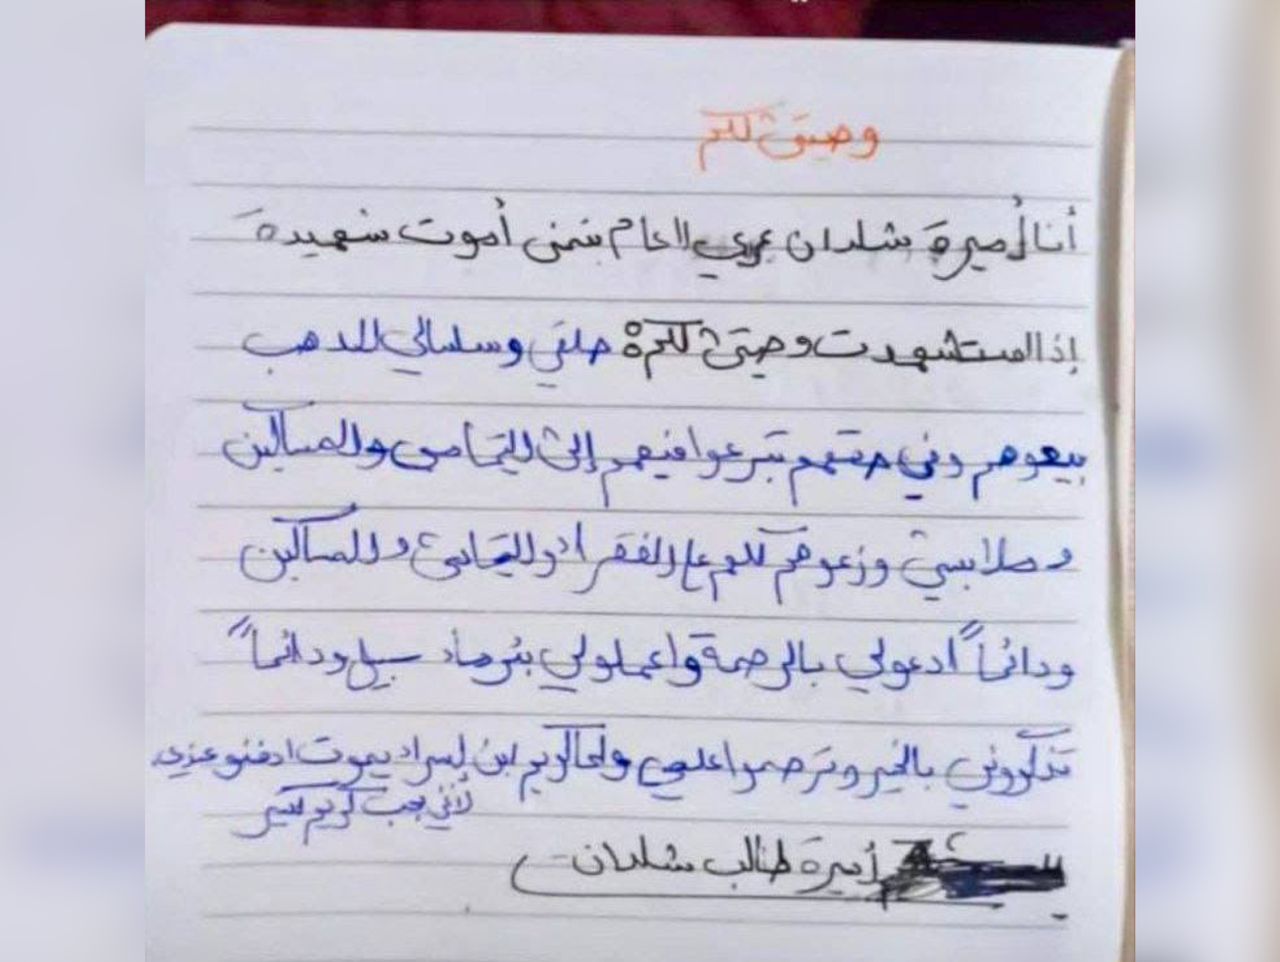 وصيتي لكم
أنا أميرة شلدان عمري 11 عام بتمنى أموت شهيدة
إذا استشهدت وصيتي لكم: حلقي وسلسالي الدهب
بيعوهم وفي حقهم تبرعوا فيهم إلى اليتامى والمساكين
وملابسي وزعوهم كلهم على الفقراء واليتامى والمساكين
ودائماً ادعولي بالرحمة واعملولي بئر ماء سبيل ودائماً
تذكروني بالخير وترحموا علي ولما كريم ابن إسراء يموت ادفنو عندي
لأني بحب كريم كتير
أميرة طالب شلدان